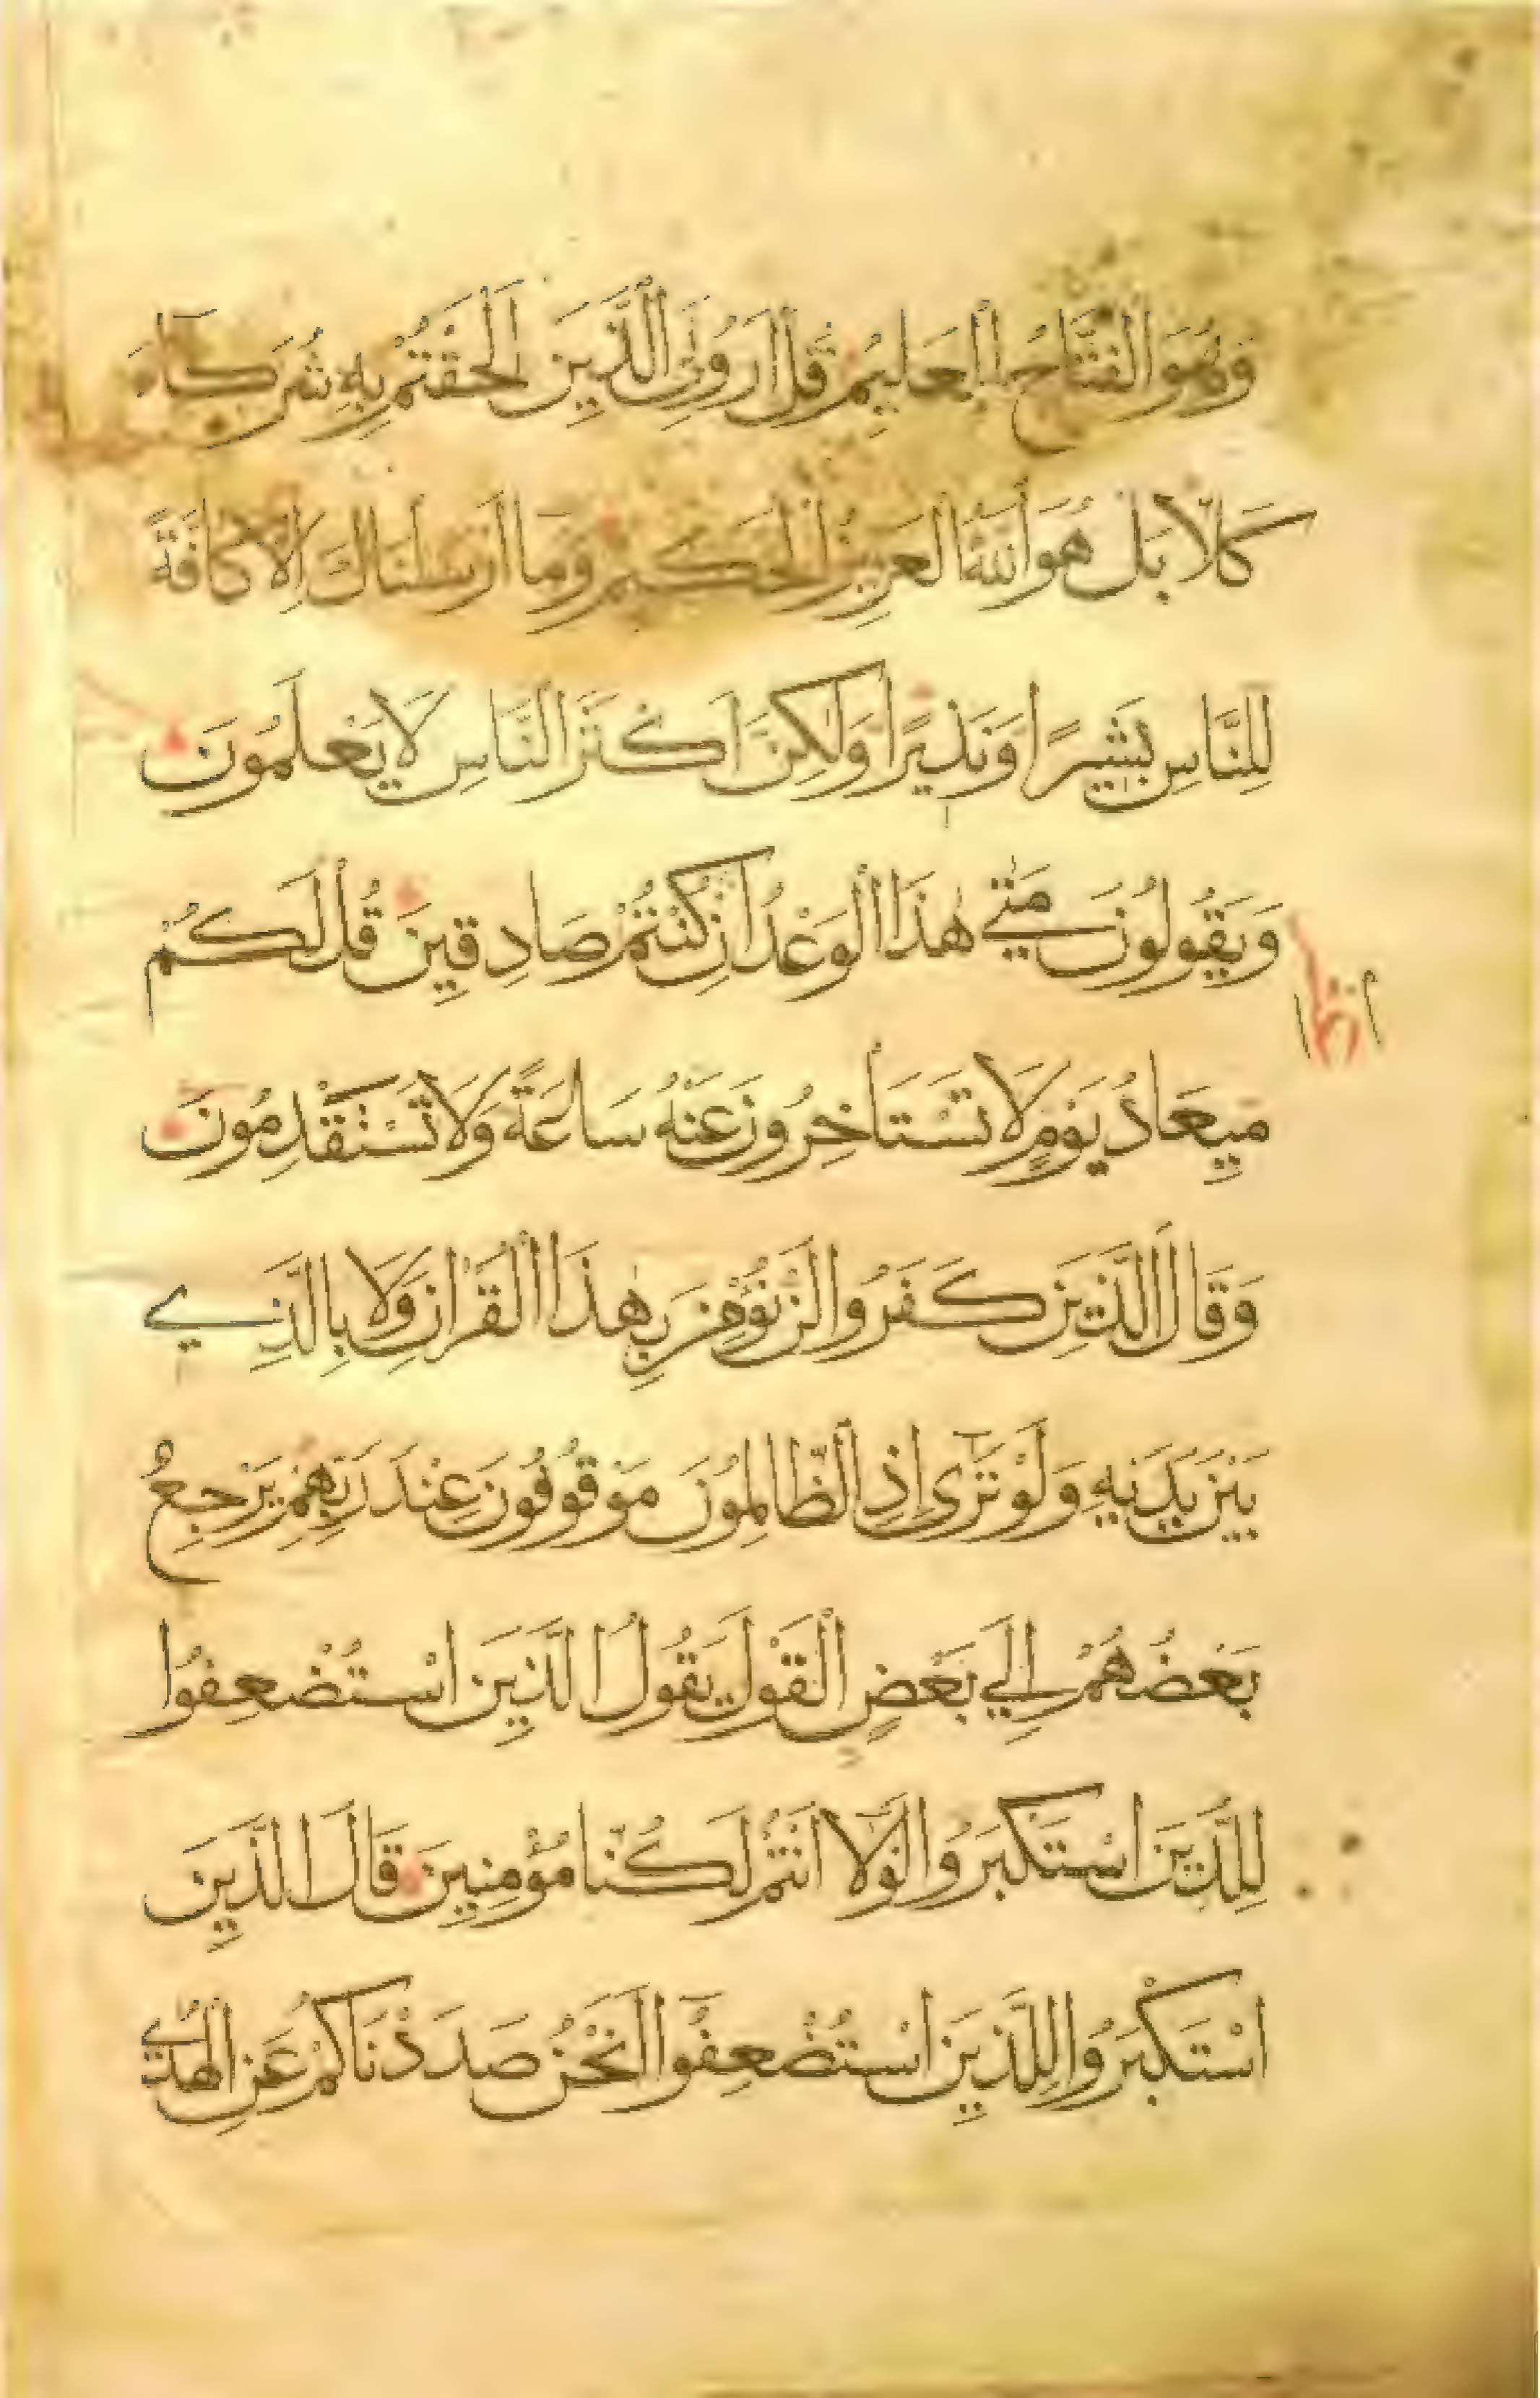 وَهُوَ الْفَتَّاحُ الْعَلِيمُ قُلْ أَرُونِيَ الَّذِينَ أَلْحَقْتُمْ بِهِ شُرَكَاءَ
كَلَّا بَلْ هُوَ اللَّهُ الْعَزِيزُ الْحَكِيمُ وَمَا أَرْسَلْنَاكَ إِلَّا كَافَّةً
لِلنَّاسِ بَشِيرًا وَنَذِيرًا وَلَٰكِنَّ أَكْثَرَ النَّاسِ لَا يَعْلَمُونَ
وَيَقُولُونَ مَتَىٰ هَٰذَا الْوَعْدُ إِنْ كُنْتُمْ صَادِقِينَ قُلْ لَكُمْ
مِيعَادُ يَوْمٍ لَا تَسْتَأْخِرُونَ عَنْهُ سَاعَةً وَلَا تَسْتَقْدِمُونَ
وَقَالَ الَّذِينَ كَفَرُوا لَنْ نُؤْمِنَ بِهَٰذَا الْقُرْآنِ وَلَا بِالَّذِي
بَيْنَ يَدَيْهِ وَلَوْ تَرَىٰ إِذِ الظَّالِمُونَ مَوْقُوفُونَ عِنْدَ رَبِّهِمْ يَرْجِعُ
بَعْضُهُمْ إِلَىٰ بَعْضٍ الْقَوْلَ يَقُولُ الَّذِينَ اسْتُضْعِفُوا
لِلَّذِينَ اسْتَكْبَرُوا لَوْلَا أَنْتُمْ لَكُنَّا مُؤْمِنِينَ قَالَ الَّذِينَ
اسْتَكْبَرُوا لِلَّذِينَ اسْتُضْعِفُوا أَنَحْنُ صَدَدْنَاكُمْ عَنِ الْهُدَىٰ